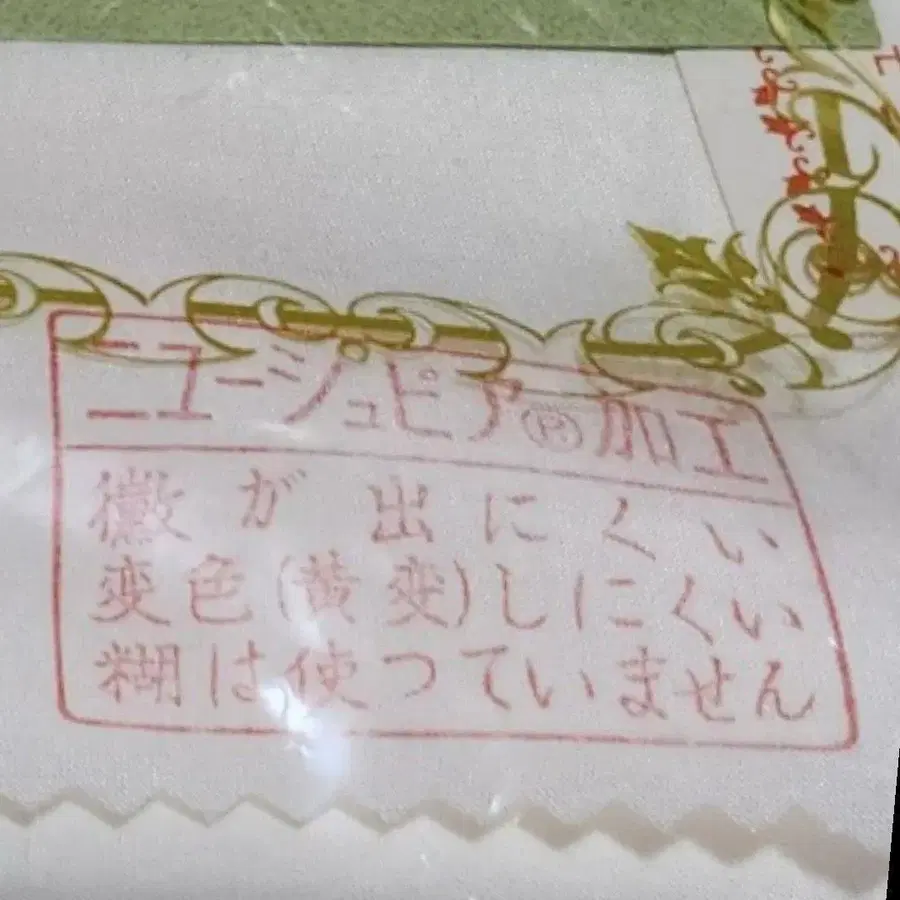 ニューシュピアⓇ加工
黴が出にくい
変色(黄変)しにくい
糊は使つていません